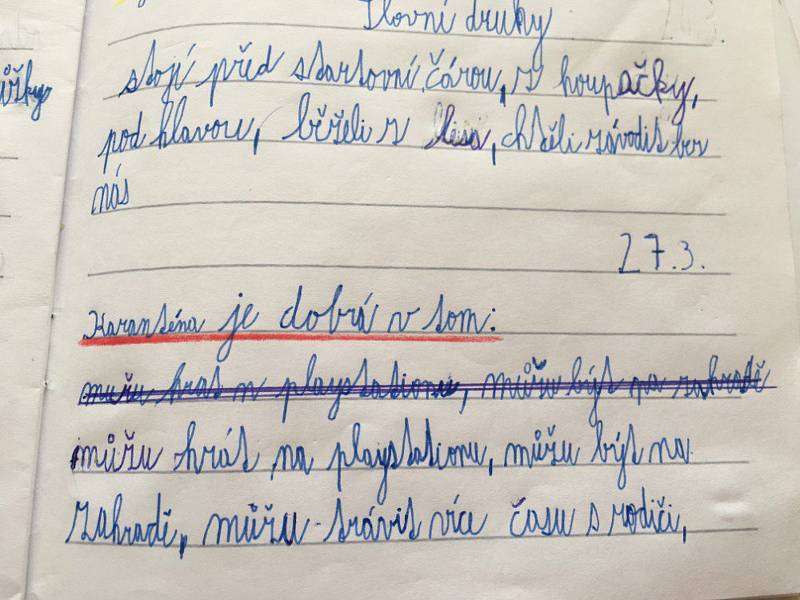 Slovní druhy
stojí před startovní čárou, z houpačky,
pod hlavou, běželi z lesa, chtěli závodit bez
nás
27.3.
Karanténa je dobrá v tom:
můžu hrát n playstationu, můžu být na zahradě
můžu hrát na playstationu, můžu být na
zahradě, můžu trávit více času s rodiči,